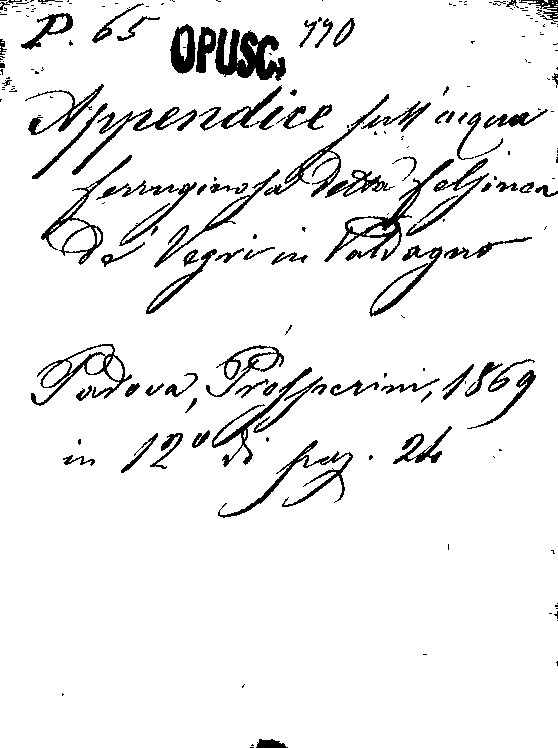 P. 65 OPUSC. 110
Appendice sull'acqua
ferruginosa detta felsinea
de' Vegri in Valdagno
Padova, Prosperini, 1869
in 12º di pag. 24